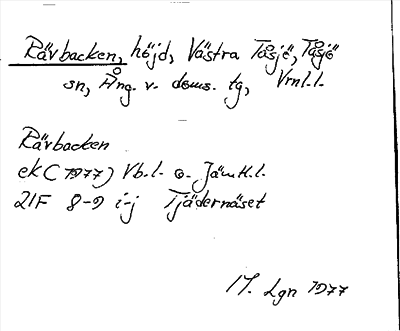 Rävbacken, höjd, Västra Tåsjö, Tåsjö
sn, Ång. v. doms. tg, Vrnl.l.
Rävbacken
ek (1977) Vb.l. o. Jämtl.l.
21F 8-9 i-j Tjädernäset
17. Lgn 1977